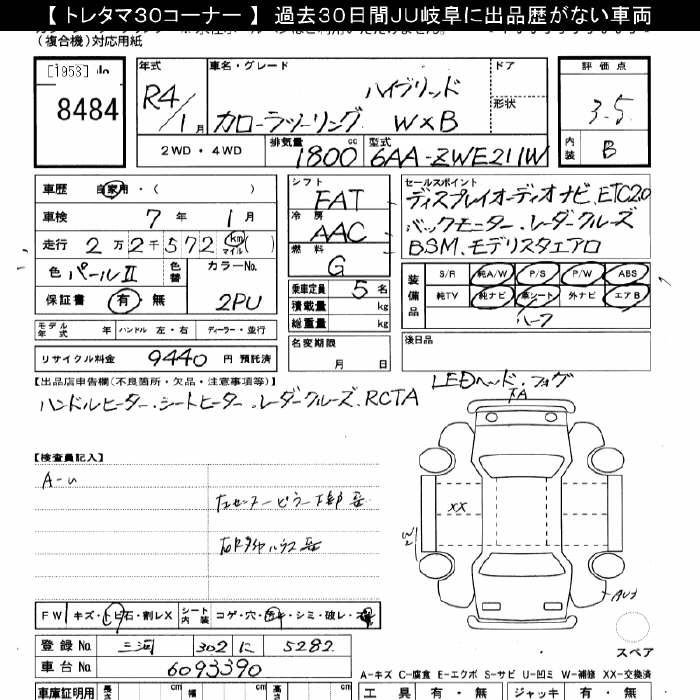 【 トレタマ３０コーナー 】 過去３０日間ＪＵ岐阜に出品歴がない車両
（複合機）対応用紙
[1953]
8484
年式 車名・グレード ドア 評価点
R4/1月 ハイブリッド 形状 3.5
カローラツーリング W×B 内装 B
2WD・4WD 排気量 1800 cc 型式 6AA-ZWE211W
車歴 自家用・( ) シフト FAT セールスポイント
ディスプレイオーディオナビ.ETC2.0
車検 7年 1月 冷房 AAC バックモニター.レーダークルーズ
走行 2万2千572 km マイル ( ) 燃料 G BSM.モデリスタエアロ
色 パールⅡ 色替 カラーNo. 2PU
乗車定員 5名
装備品 S/R 純A/W P/S P/W ABS
保証書 有・無 積載量 kg 純TV 純ナビ 革シート 外ナビ エアB
ハーフ
総重量 kg
モデル年式 年 ハンドル 左・右 ディーラー・並行
名変期限 月 日 後日品
リサイクル料金 9440 円 預託済
【出品店申告欄(不良箇所・欠品・注意事項等)】 LEDヘッド.フォグ
ハンドルヒーター.シートヒーター.レーダークルーズ.RCTA
【検査員記入】
XX
FW キズ・トビ石・割レX シート内装 コゲ・穴・汚キ・シミ・破レ・
スペア
登録No. 三河 302 に 5282
車台No. 6093390
A-キズ C-腐食 E-エクボ S-サビ U-凹ミ W-補修 XX-交換済
車庫証明用 長さ cm 幅 cm 高さ cm 工具 有・無 ジャッキ 有・無